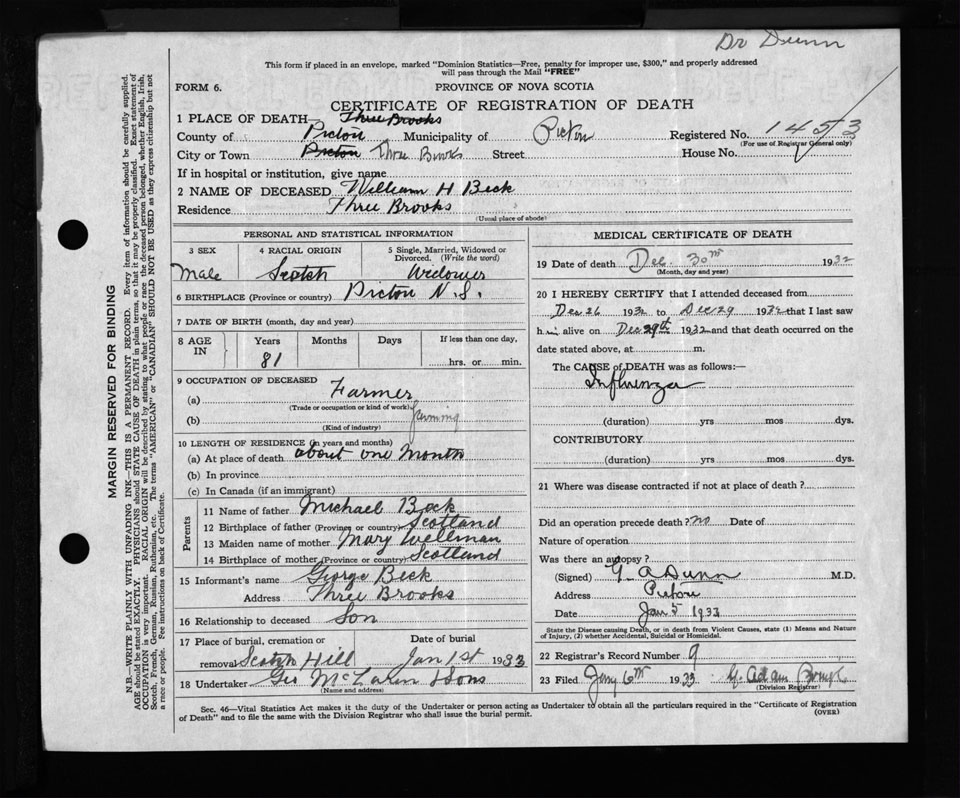 Dr Dunn
This form if placed in an envelope, marked "Dominion Statistics—Free, penalty for improper use, $300," and properly addressed
will pass through the Mail "FREE"
FORM 6. PROVINCE OF NOVA SCOTIA
CERTIFICATE OF REGISTRATION OF DEATH
1 PLACE OF DEATH— Three Brooks
County of Pictou Municipality of Pictou Registered No. 1453
(For use of Registrar General only)
City or Town Pictou Three Brooks Street House No.
If in hospital or institution, give name
2 NAME OF DECEASED William H Beck
Residence Three Brooks
(Usual place of abode)
PERSONAL AND STATISTICAL INFORMATION
3 SEX 4 RACIAL ORIGIN 5 Single, Married, Widowed or
Divorced. (Write the word)
Male Scotch Widower
6 BIRTHPLACE (Province or country) Pictou N.S.
7 DATE OF BIRTH (month, day and year)
8 AGE Years Months Days If less than one day,
IN 81 hrs. or min.
9 OCCUPATION OF DECEASED
(a) Farmer
(Trade or occupation or kind of work)
(b) farming
(Kind of industry)
10 LENGTH OF RESIDENCE (in years and months)
(a) At place of death about one Month
(b) In province
(c) In Canada (if an immigrant)
Parents
11 Name of father Michael Beck
12 Birthplace of father (Province or country) Scotland
13 Maiden name of mother Mary Wellman
14 Birthplace of mother (Province or country) Scotland
15 Informant's name George Beck
Address Three Brooks
16 Relationship to deceased Son
17 Place of burial, cremation or Date of burial
removal Scotch Hill Jan 1st 1933
18 Undertaker Geo McLaren & Sons
(Name and address)
MEDICAL CERTIFICATE OF DEATH
19 Date of death Dec. 30th 1932
(Month, day and year)
20 I HEREBY CERTIFY that I attended deceased from
Dec 26 1932 to Dec 29 1932 that I last saw
him alive on Dec 29th 1932 and that death occurred on the
date stated above, at m.
The CAUSE of DEATH was as follows:—
Influenza
(duration) yrs mos dys.
CONTRIBUTORY
(duration) yrs. mos dys.
21 Where was disease contracted if not at place of death?
Did an operation precede death? no Date of
Nature of operation
Was there an autopsy?
(Signed) G A Dunn M.D.
Address Pictou
Date Jan 5 1933
State the Disease causing Death, or in death from Violent Causes, state (1) Means and Nature
of Injury, (2) whether Accidental, Suicidal or Homicidal.
22 Registrar's Record Number 9
23 Filed Jany 6th 1933 Adam
(Division Registrar)
Sec. 46—Vital Statistics Act makes it the duty of the Undertaker or person acting as Undertaker to obtain all the particulars required in the "Certificate of Registration
of Death" and to file the same with the Division Registrar who shall issue the burial permit. (OVER)
MARGIN RESERVED FOR BINDING
N.B.—WRITE PLAINLY WITH UNFADING INK—THIS IS A PERMANENT RECORD. Every item of information should be carefully supplied.
AGE should be stated EXACTLY. PHYSICIANS should STATE CAUSE OF DEATH in plain terms, so that it may be properly classified. Exact statement of
OCCUPATION is very important. RACIAL ORIGIN will be described by stating to what people or race the deceased person belonged, whether English, Irish,
Scotch, French, German, Russian, Ruthenian, etc. The terms "AMERICAN" or "CANADIAN" SHOULD NOT BE USED as they express citizenship but not
a race or people. See instructions on back of Certificate.